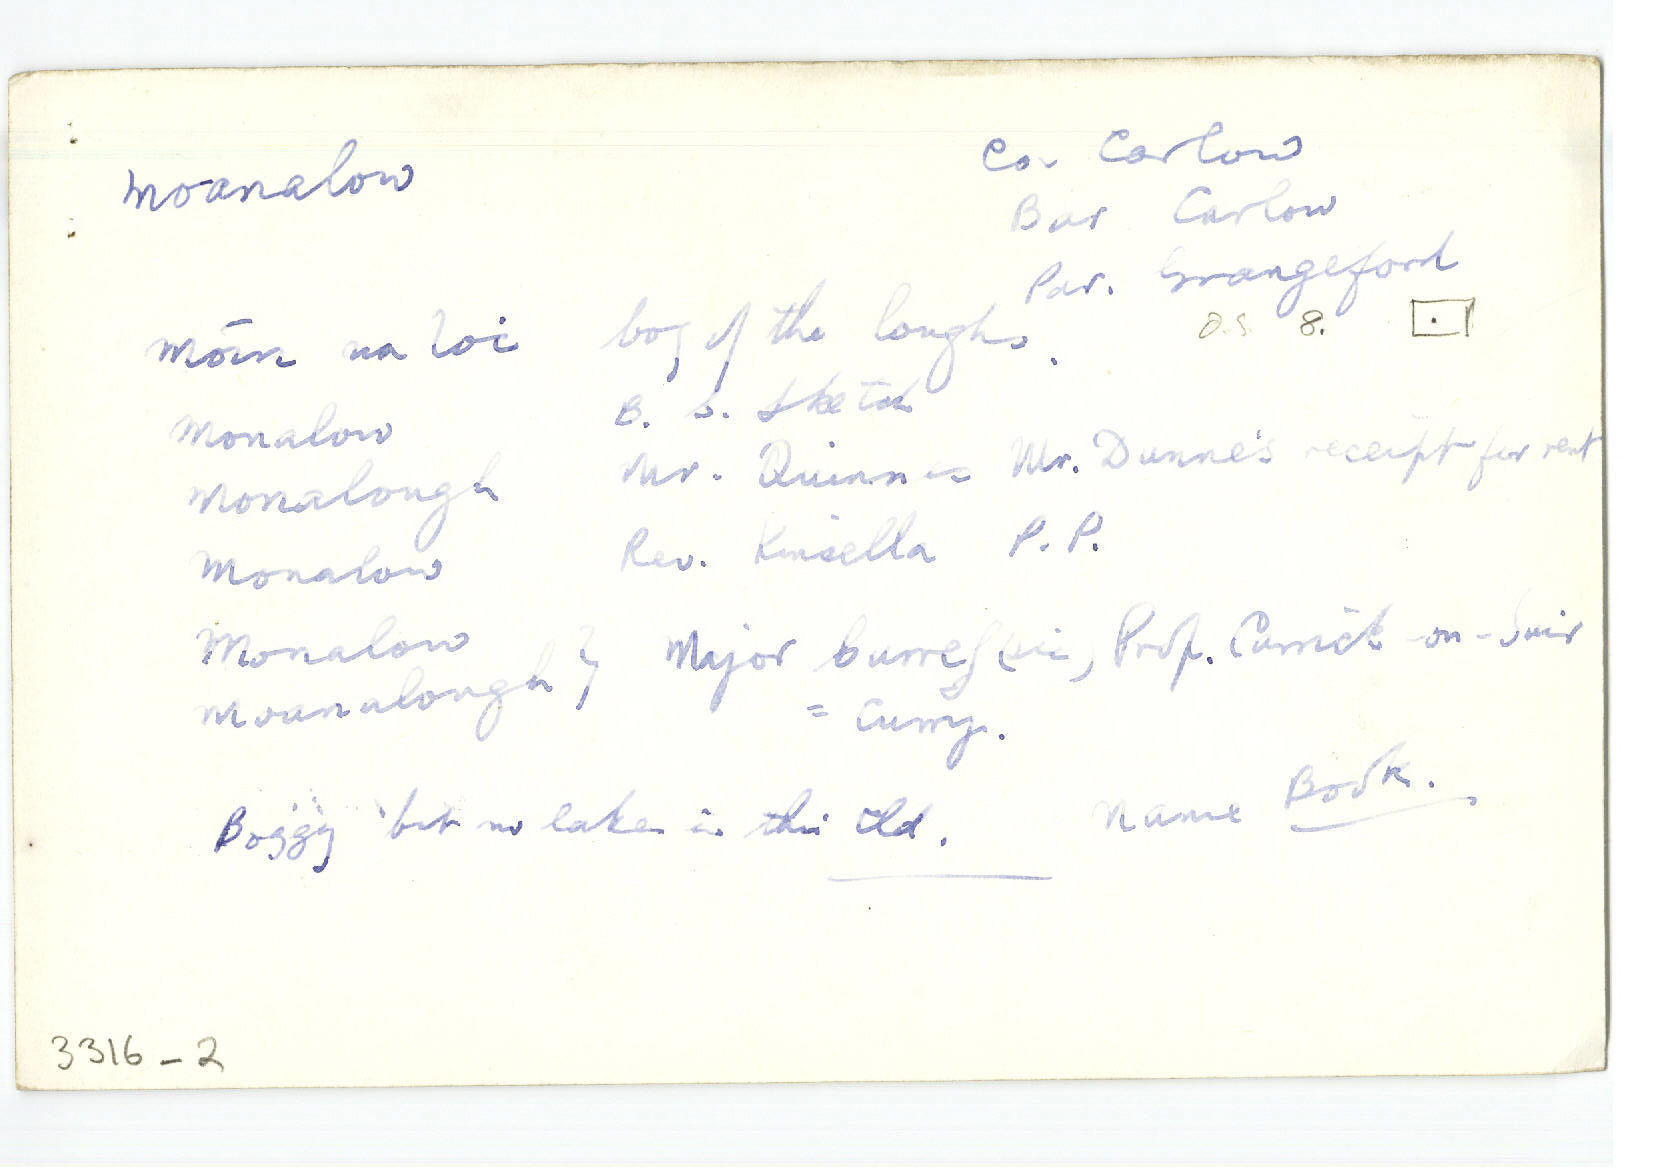 Moanalow
Co. Carlow
Bar Carlow
Par. Grangeford
O.S. 8.
Móin na loċ bog of the loughs.
Monalow B. S. Sketch
Monalough Mr. Quinn = Mr. Dunne's receipt for rent
Monalow Rev. Kinsella P.P.
Monalow
Moanalough } Major (sic) Prop. Carrick-on-Suir
= Curry.
Boggy but no lake in this tld. Name Book.
3316-2